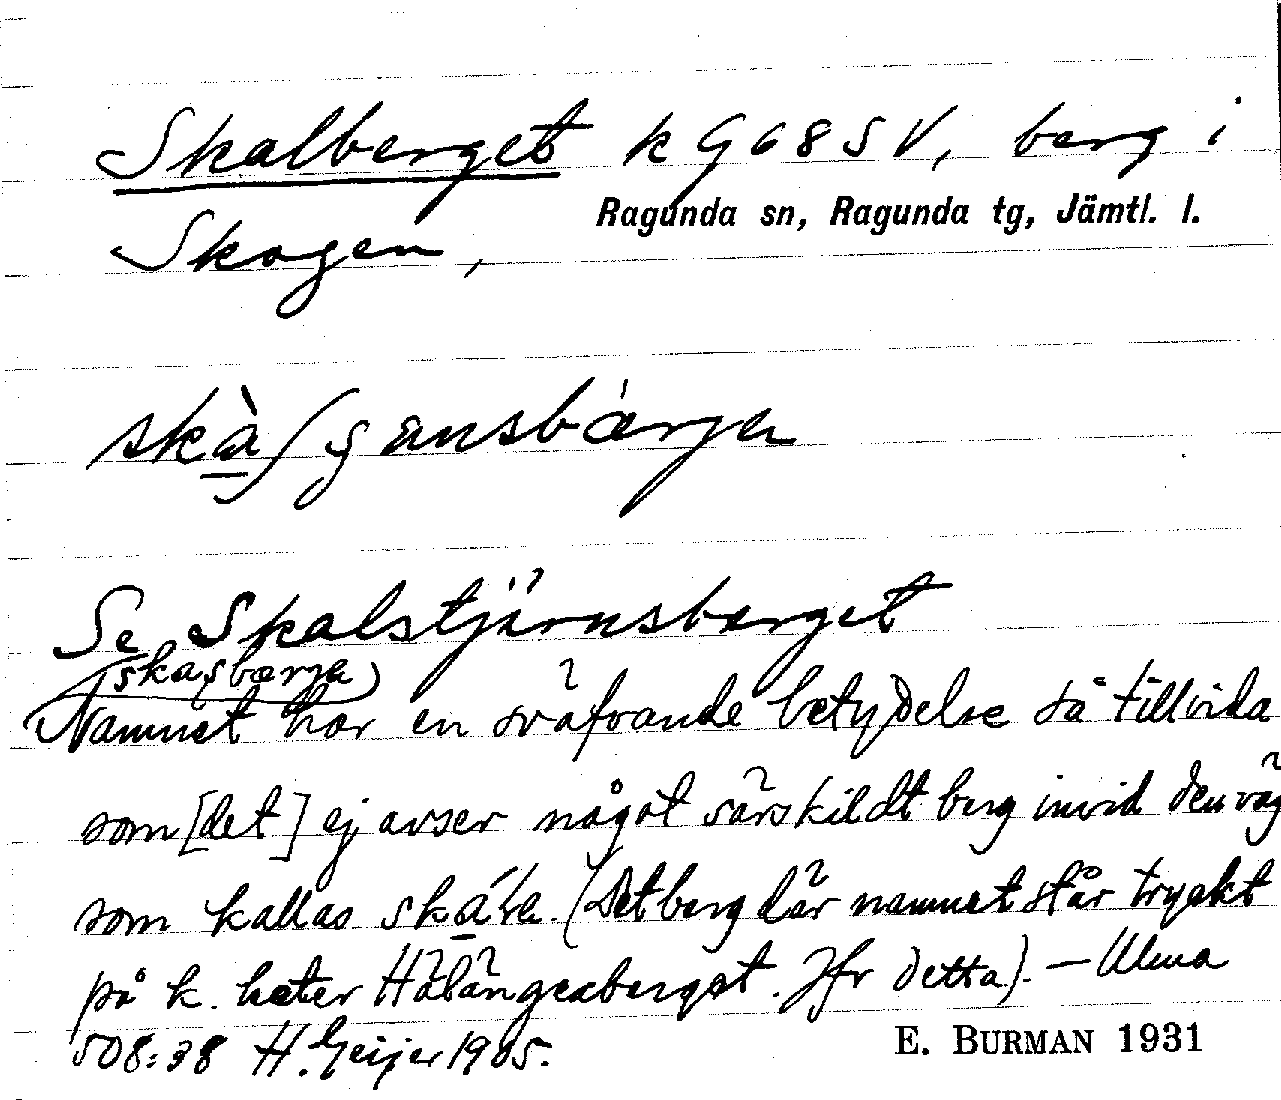 Skalberget k G68SV, berg i
Ragunda sn, Ragunda tg, Jämtl. l.
Skogen,
Se Skalstjärnsberget
Namnet har en sväfvande betydelse så tillvida
som [det] ej avser något särskildt berg invid den väg
som kallas (Det berg där namnet står tryckt
på k. heter Jfr detta). — Ulma
508:38 H. Geijer 1905.
E. BURMAN 1931